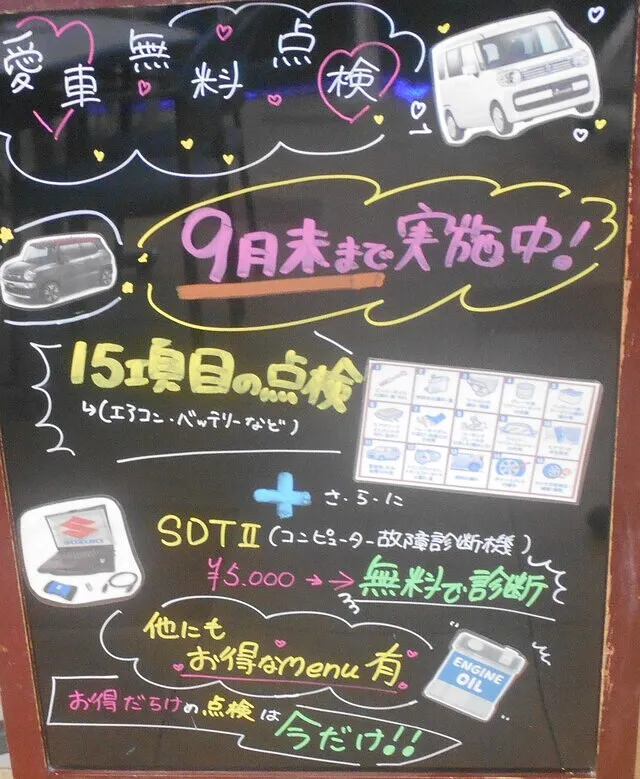 愛車無料点検
9月末まで実施中!
15項目の点検
↳(エアコン・バッテリーなど)
+ さ・ら・に
SUZUKI
SDTⅡ(コンピューター故障診断機)
¥5.000→→無料で診断
他にも
お得なmenu有
ENGINE
OIL
お得だらけの点検は
今だけ!!